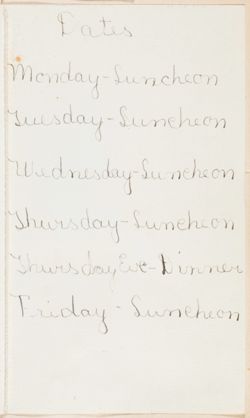 Dates
Monday-Luncheon
Tuesday-Luncheon
Wednesday-Luncheon
Thursday-Luncheon
Thursday Eve-Dinner
Friday - Luncheon